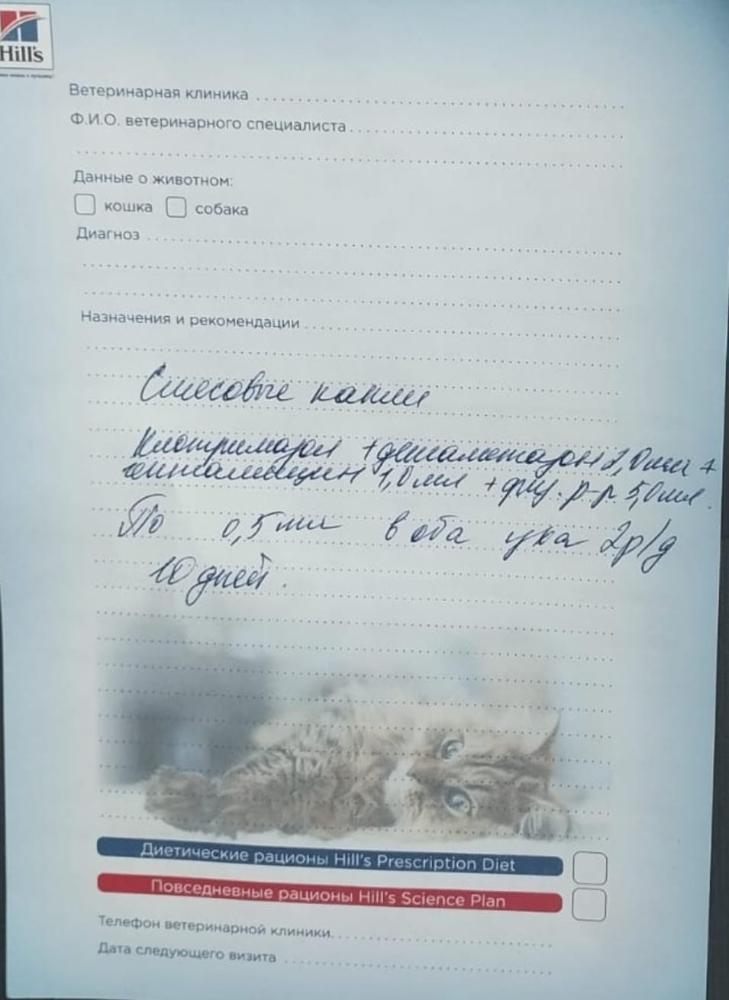 Hill's
Ветеринарная клиника
Ф.И.О. ветеринарного специалиста
Данные о животном:
кошка собака
Диагноз
Назначения и рекомендации
Смесовые капли
Клотримазол + дексаметазон 2,0мл +
гентамицин 1,0мл + физ. р-р 5,0мл.
По 0,5мл в оба уха 2р/д
10 дней.
Диетические рационы Hill's Prescription Diet
Повседневные рационы Hill's Science Plan
Телефон ветеринарной клиники
Дата следующего визита